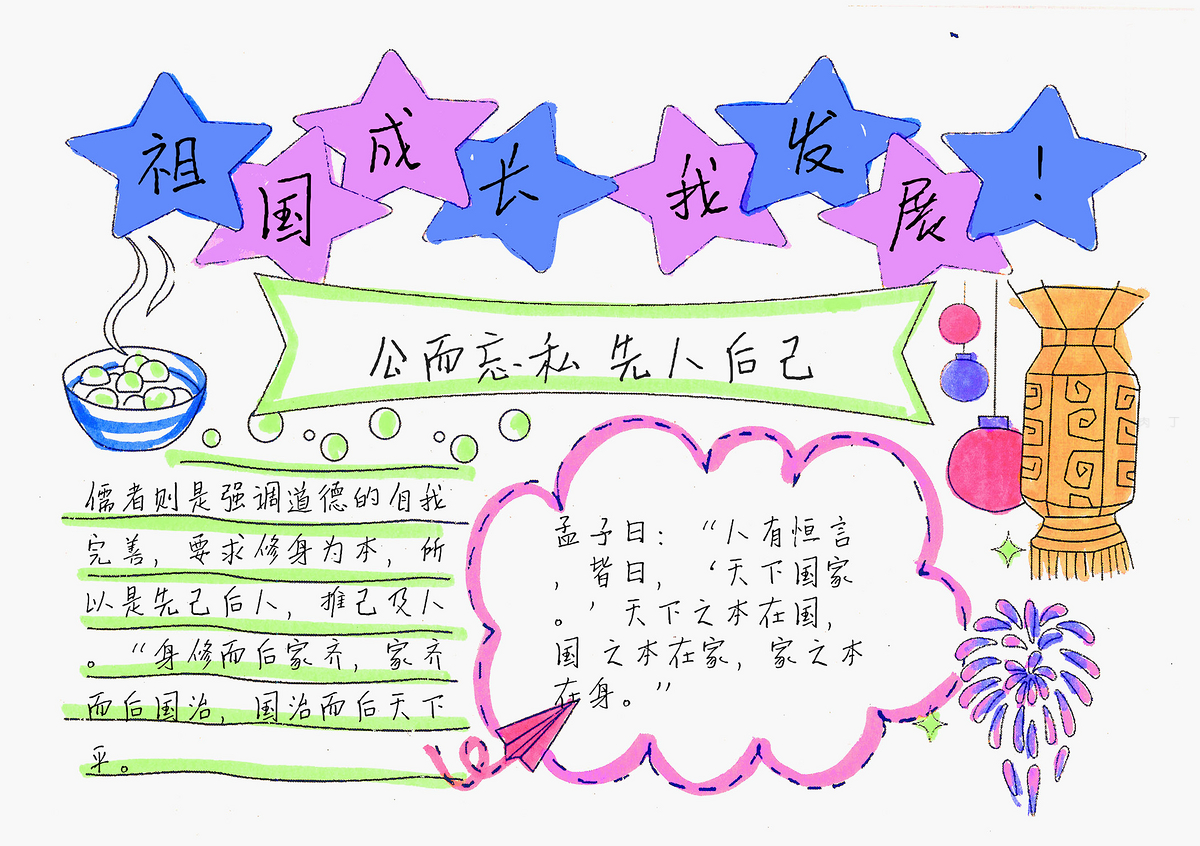 祖国成长我发展！
公而忘私 先人后己
儒者则是强调道德的自我
完善，要求修身为本，所
以是先己后人，推己及人
。“身修而后家齐，家齐
而后国治，国治而后天下
平。
孟子曰：“人有恒言
，皆曰，‘天下国家
。’天下之本在国，
国之本在家，家之本
在身。”